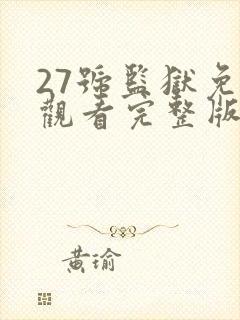 27號監獄免
觀看完整版
黃瑜